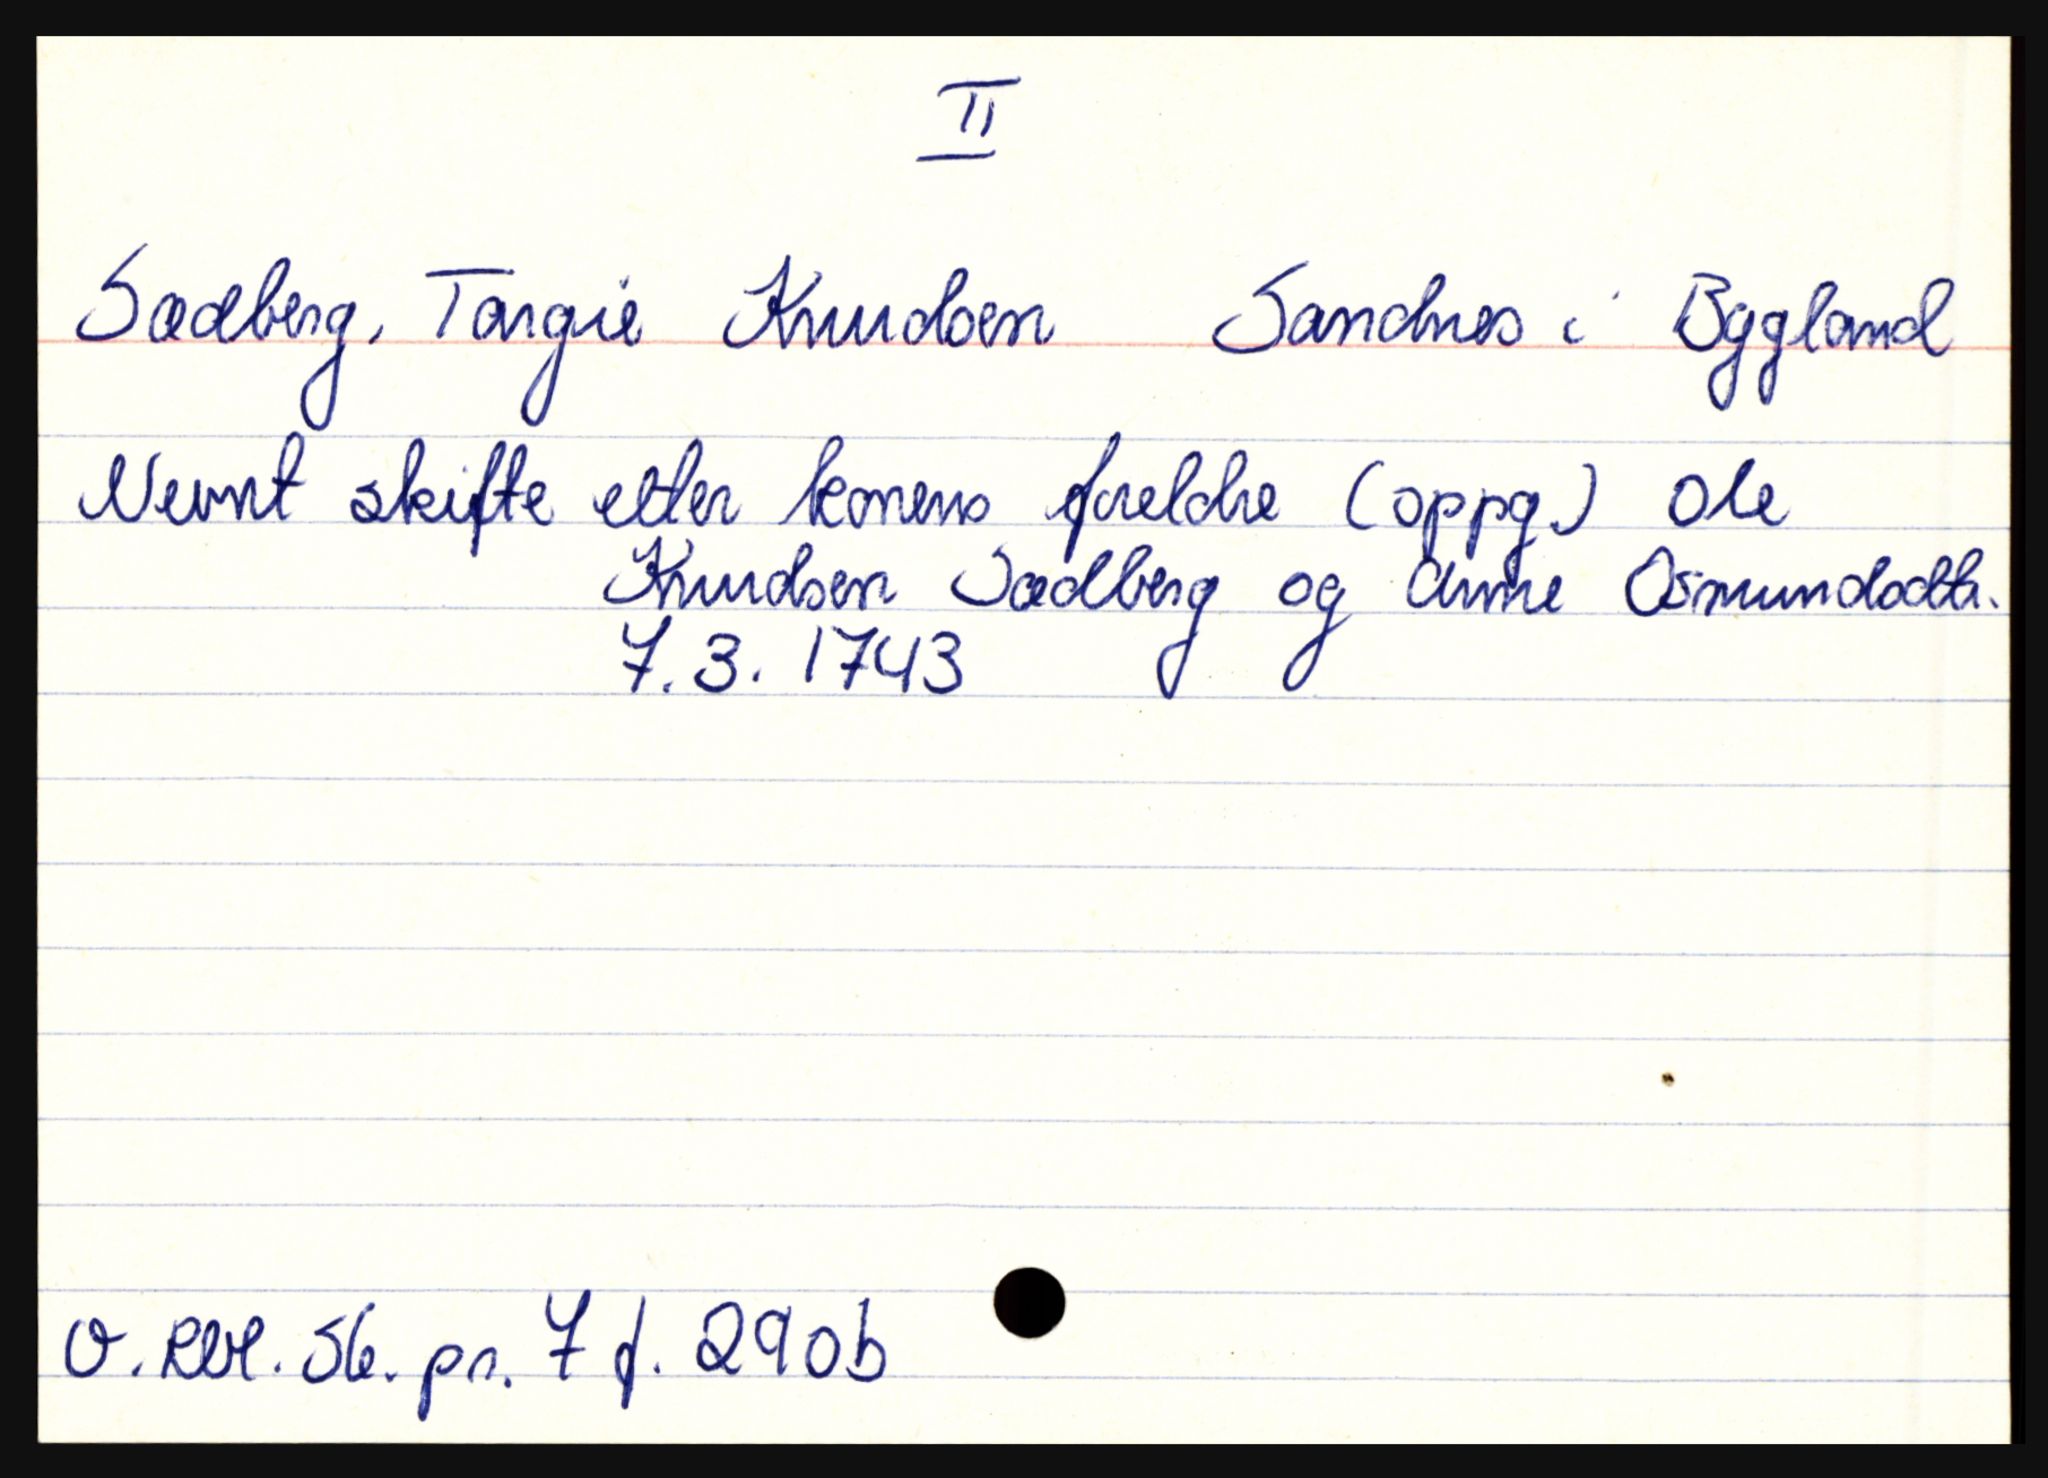 II
Sædberg, Targie Knudsen Sandnes i Bygland
Nevnt skifte etter konens foreldre (oppg.) Ole
Knudsen Sædberg og Anne Osmundsdtr.
7.3. 1743
O. Rbl. S6. pr. 7 f. 290b